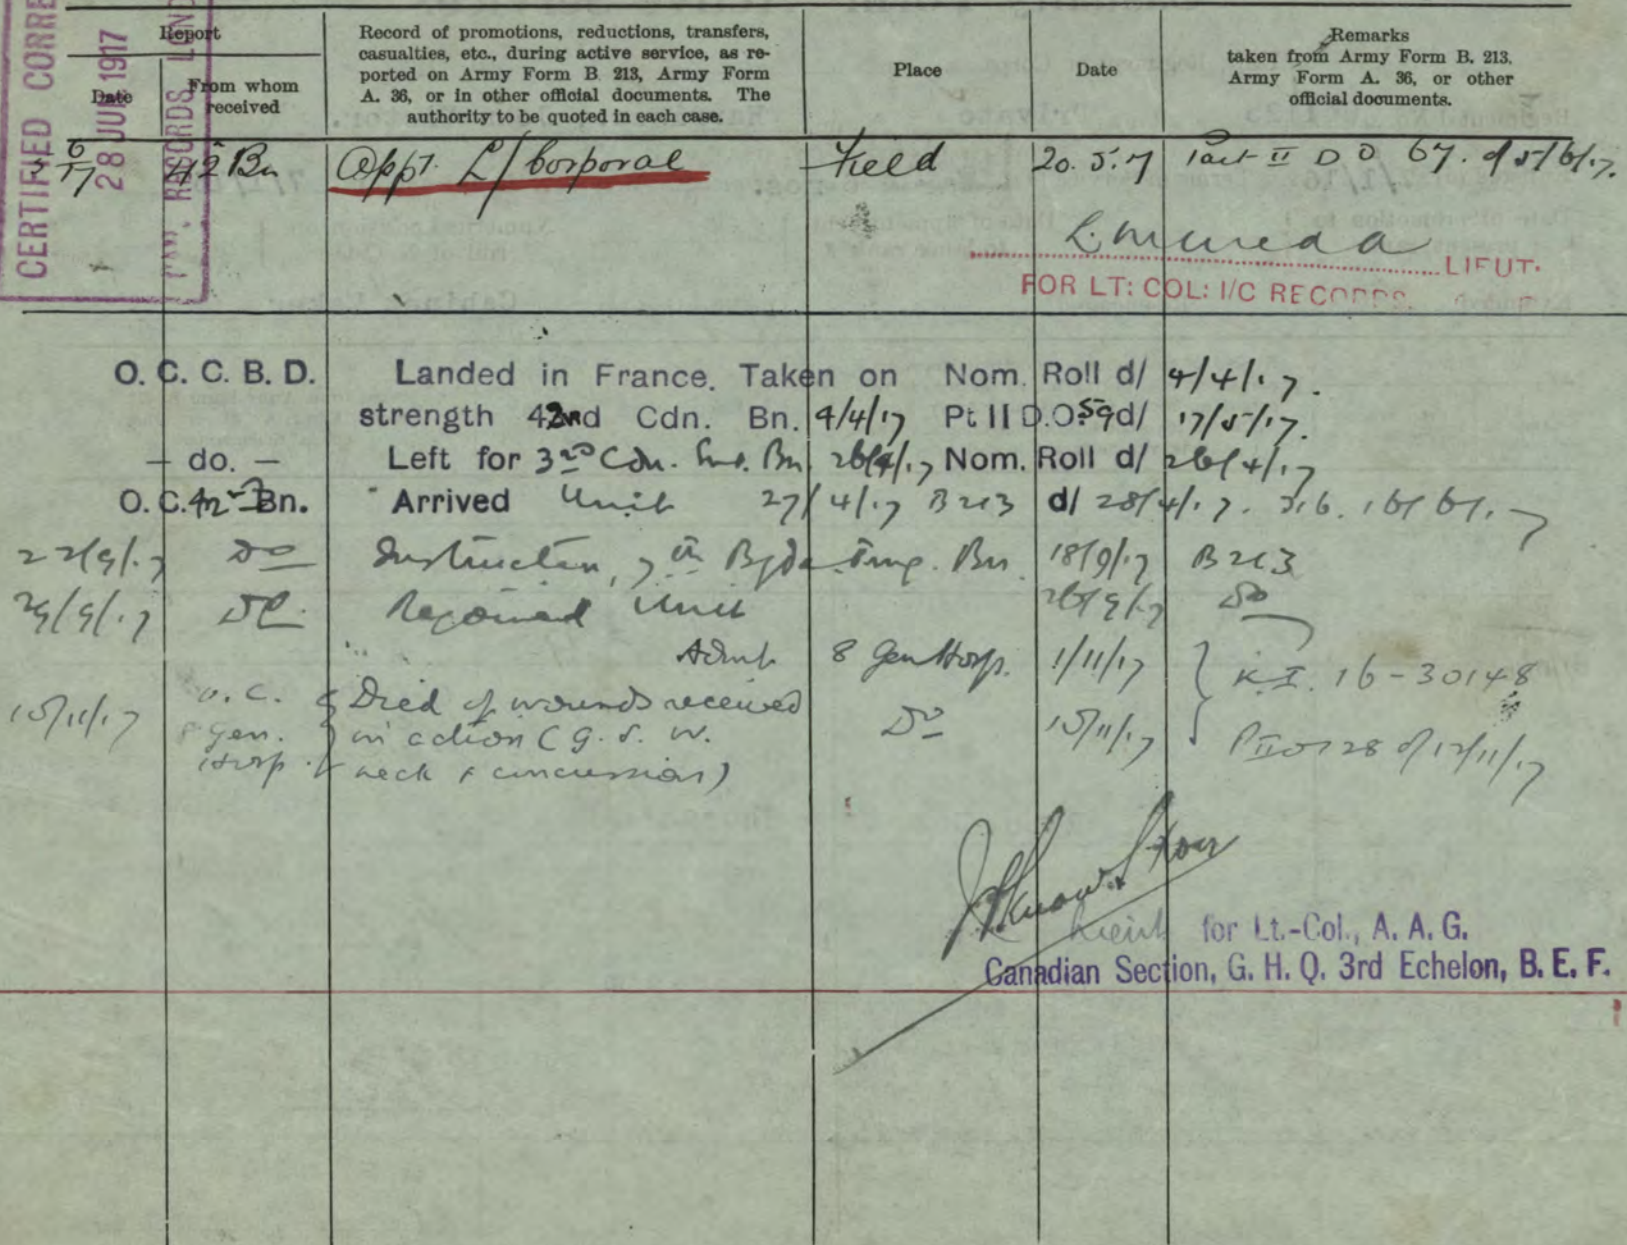 CERTIFIED CORRE
28 JUN 1917
RECORDS, LOND
Report
Date
From whom
received
Record of promotions, reductions, transfers,
casualties, etc., during active service, as re-
ported on Army Form B. 213, Army Form
A. 36, or in other official documents. The
authority to be quoted in each case.
Place
Date
Remarks
taken from Army Form B. 213,
Army Form A. 36, or other
official documents.
42 Bn Appt. L/Corporal Field 20.5.17 Part II D O 67. d/5/6/17.
LIEUT.
FOR LT: COL: I/C RECORDS.
O. C. C. B. D. Landed in France. Taken on Nom. Roll d/ 4/4/17.
strength 42nd Cdn. Bn. 4/4/17 Pt II D.O 59 d/ 17/5/17.
— do. — Left for 3rd Cdn. Bn. 26/4/17 Nom. Roll d/ 26/4/17
O.C. 42nd Bn. Arrived Unit 27/4/17 B213 d/ 28/4/17.
22/9/17 Do Instruction, 7th Bgde Trng. Bn. 18/9/17 B213
29/9/17 Do. Rejoined Unit 26/9/17 Do
Admt 8 Gen Hosp. 1/11/17
K.I. 16-30148
10/11/17 O.C. 8 Gen. Hosp. Died of wounds received
in action (G.S.W.
neck & concussion) Do 10/11/17
Lieut for Lt.-Col., A. A. G.
Canadian Section, G. H. Q. 3rd Echelon, B. E. F.